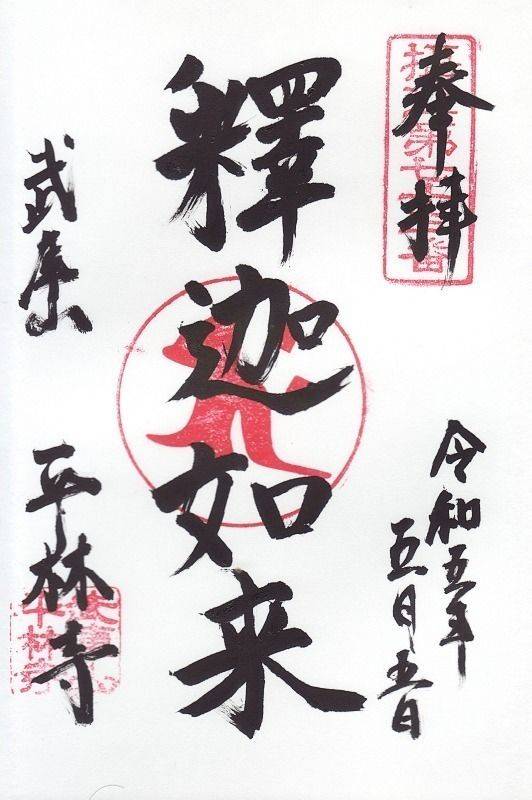 奉拝
令和五年
五月五日
釋迦如来
武庫山
平林寺